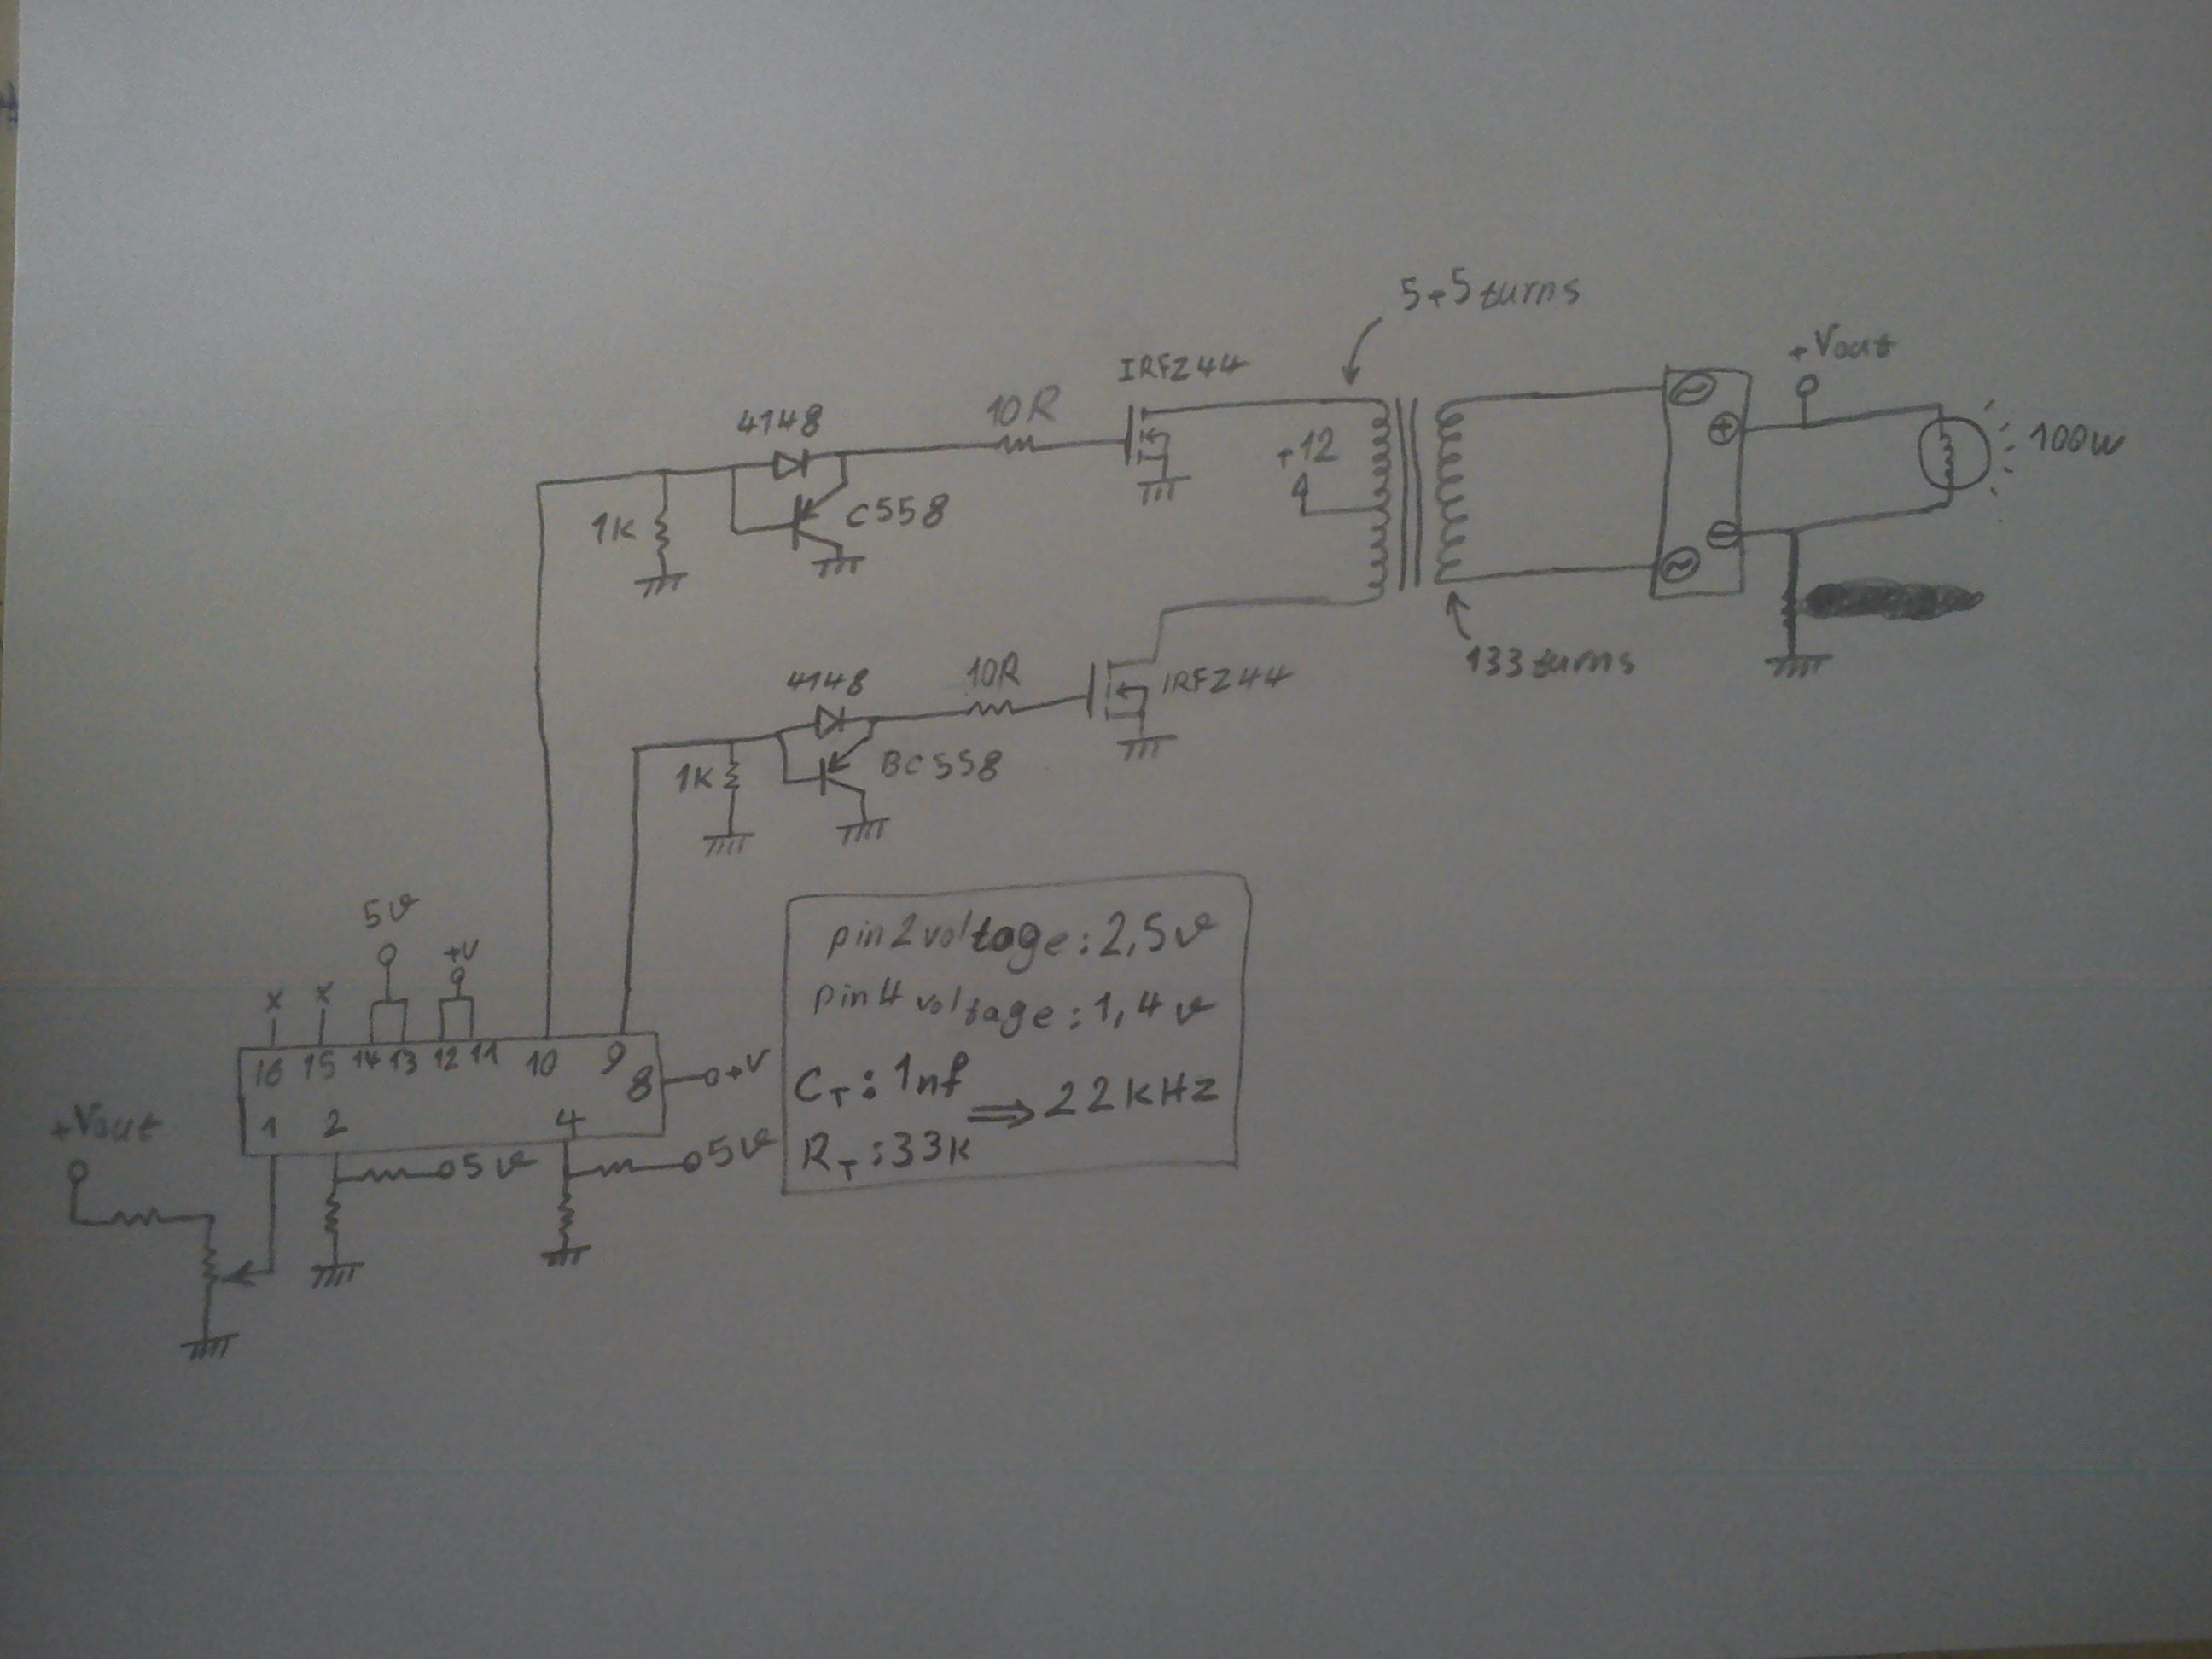 5+5 turns
IRFZ44
+Vout
4148
10R
+12
100W
1K
C558
133 turns
4148
10R
IRFZ44
1K
BC558
5V
+V
x x
16 15 14 13 12 11 10 9
8
+V
1 2 4
+Vout
5V
5V
pin2 voltage: 2,5V
pin4 voltage: 1,4V
CT: 1nf
⇒ 22KHz
RT: 33K